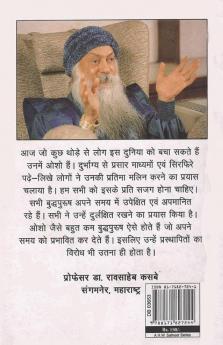 आज जो कुछ थोड़े से लोग इस दुनिया को बचा सकते हैं
उनमें ओशो हैं। दुर्भाग्य से प्रसार माध्यमों एवं सिरफिरे
पढ़े-लिखे लोगों ने उनकी प्रतिमा मलिन करने का प्रयास
चलाया है। हम सभी को इसके प्रति सजग होना चाहिए।
सभी बुद्धपुरूष अपने समय में उपेक्षित एवं अपमानित
रहे हैं। सभी ने उन्हें दुर्लक्षित रखने का प्रयास किया है।
ओशो जैसे बहुत कम बुद्धपुरूष ऐसे होते हैं जो अपने
समय को प्रभावित कर देते हैं। इसलिए उन्हें प्रस्थापितों का
विरोध भी उतना ही होता है।
प्रोफेसर डा. रावसाहेब कसबे
संगमनेर, महाराष्ट्र